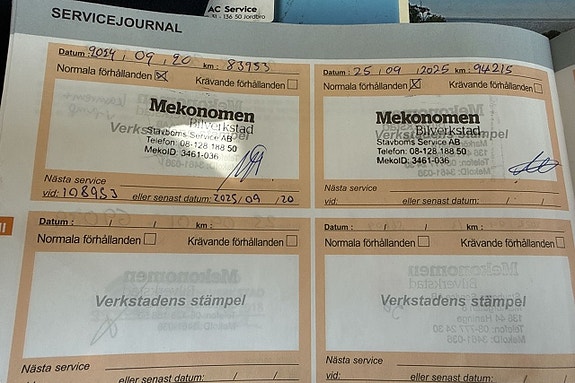 AC Service
- 136 50 Jordbro
SERVICEJOURNAL
Datum : 2024 / 09 / 20 km : 83953
Normala förhållanden ☒ Krävande förhållanden ☐
Mekonomen
Bilverkstad
Verkstadens stämpel
Stavboms Service AB
Telefon: 08-128 188 50
MekoID: 3461-036
Nästa service
vid: 108953 eller senast datum: 2025 / 09 / 20
Datum : 25 / 09 / 2025 km : 94215
Normala förhållanden ☒ Krävande förhållanden ☐
Mekonomen
Bilverkstad
Verkstadens stämpel
Stavboms Service AB
Telefon: 08-128 188 50
MekoID: 3461-036
Nästa service
vid: eller senast datum: / /
Datum : / / km :
Normala förhållanden ☐ Krävande förhållanden ☐
Verkstadens stämpel
Nästa service
vid: eller senast datum: / /
Datum : / / km :
Normala förhållanden ☐ Krävande förhållanden ☐
Verkstadens stämpel
Nästa service
vid: eller senast datum: / /